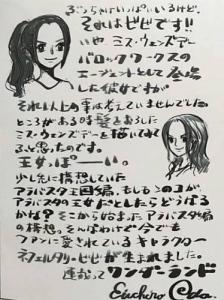 ぶっちゃけいっぱいいるけど、
それはビビです!!
いや ミス・ウェンズデー
バロックワークスの
エージェントとして登場
した彼女ですが
それ以上の事は考えていませんでした。
ところがある時髪をおろした
ミス・ウェンズデーを描いてみて
ふと思ったのです。
王女っぽーい。
少し先に構想していた
アラバスタ王国編、もしもこのコが、
アラバスタの王女だとしたらどうなる
かな? そこから始まったアラバスタ編
の構想。そんなわけで今でも
ファンに愛されているキャラクター
ネフェルタリ・ビビが生まれました。
連載って ワンダーランド
Eiichiro Oda.